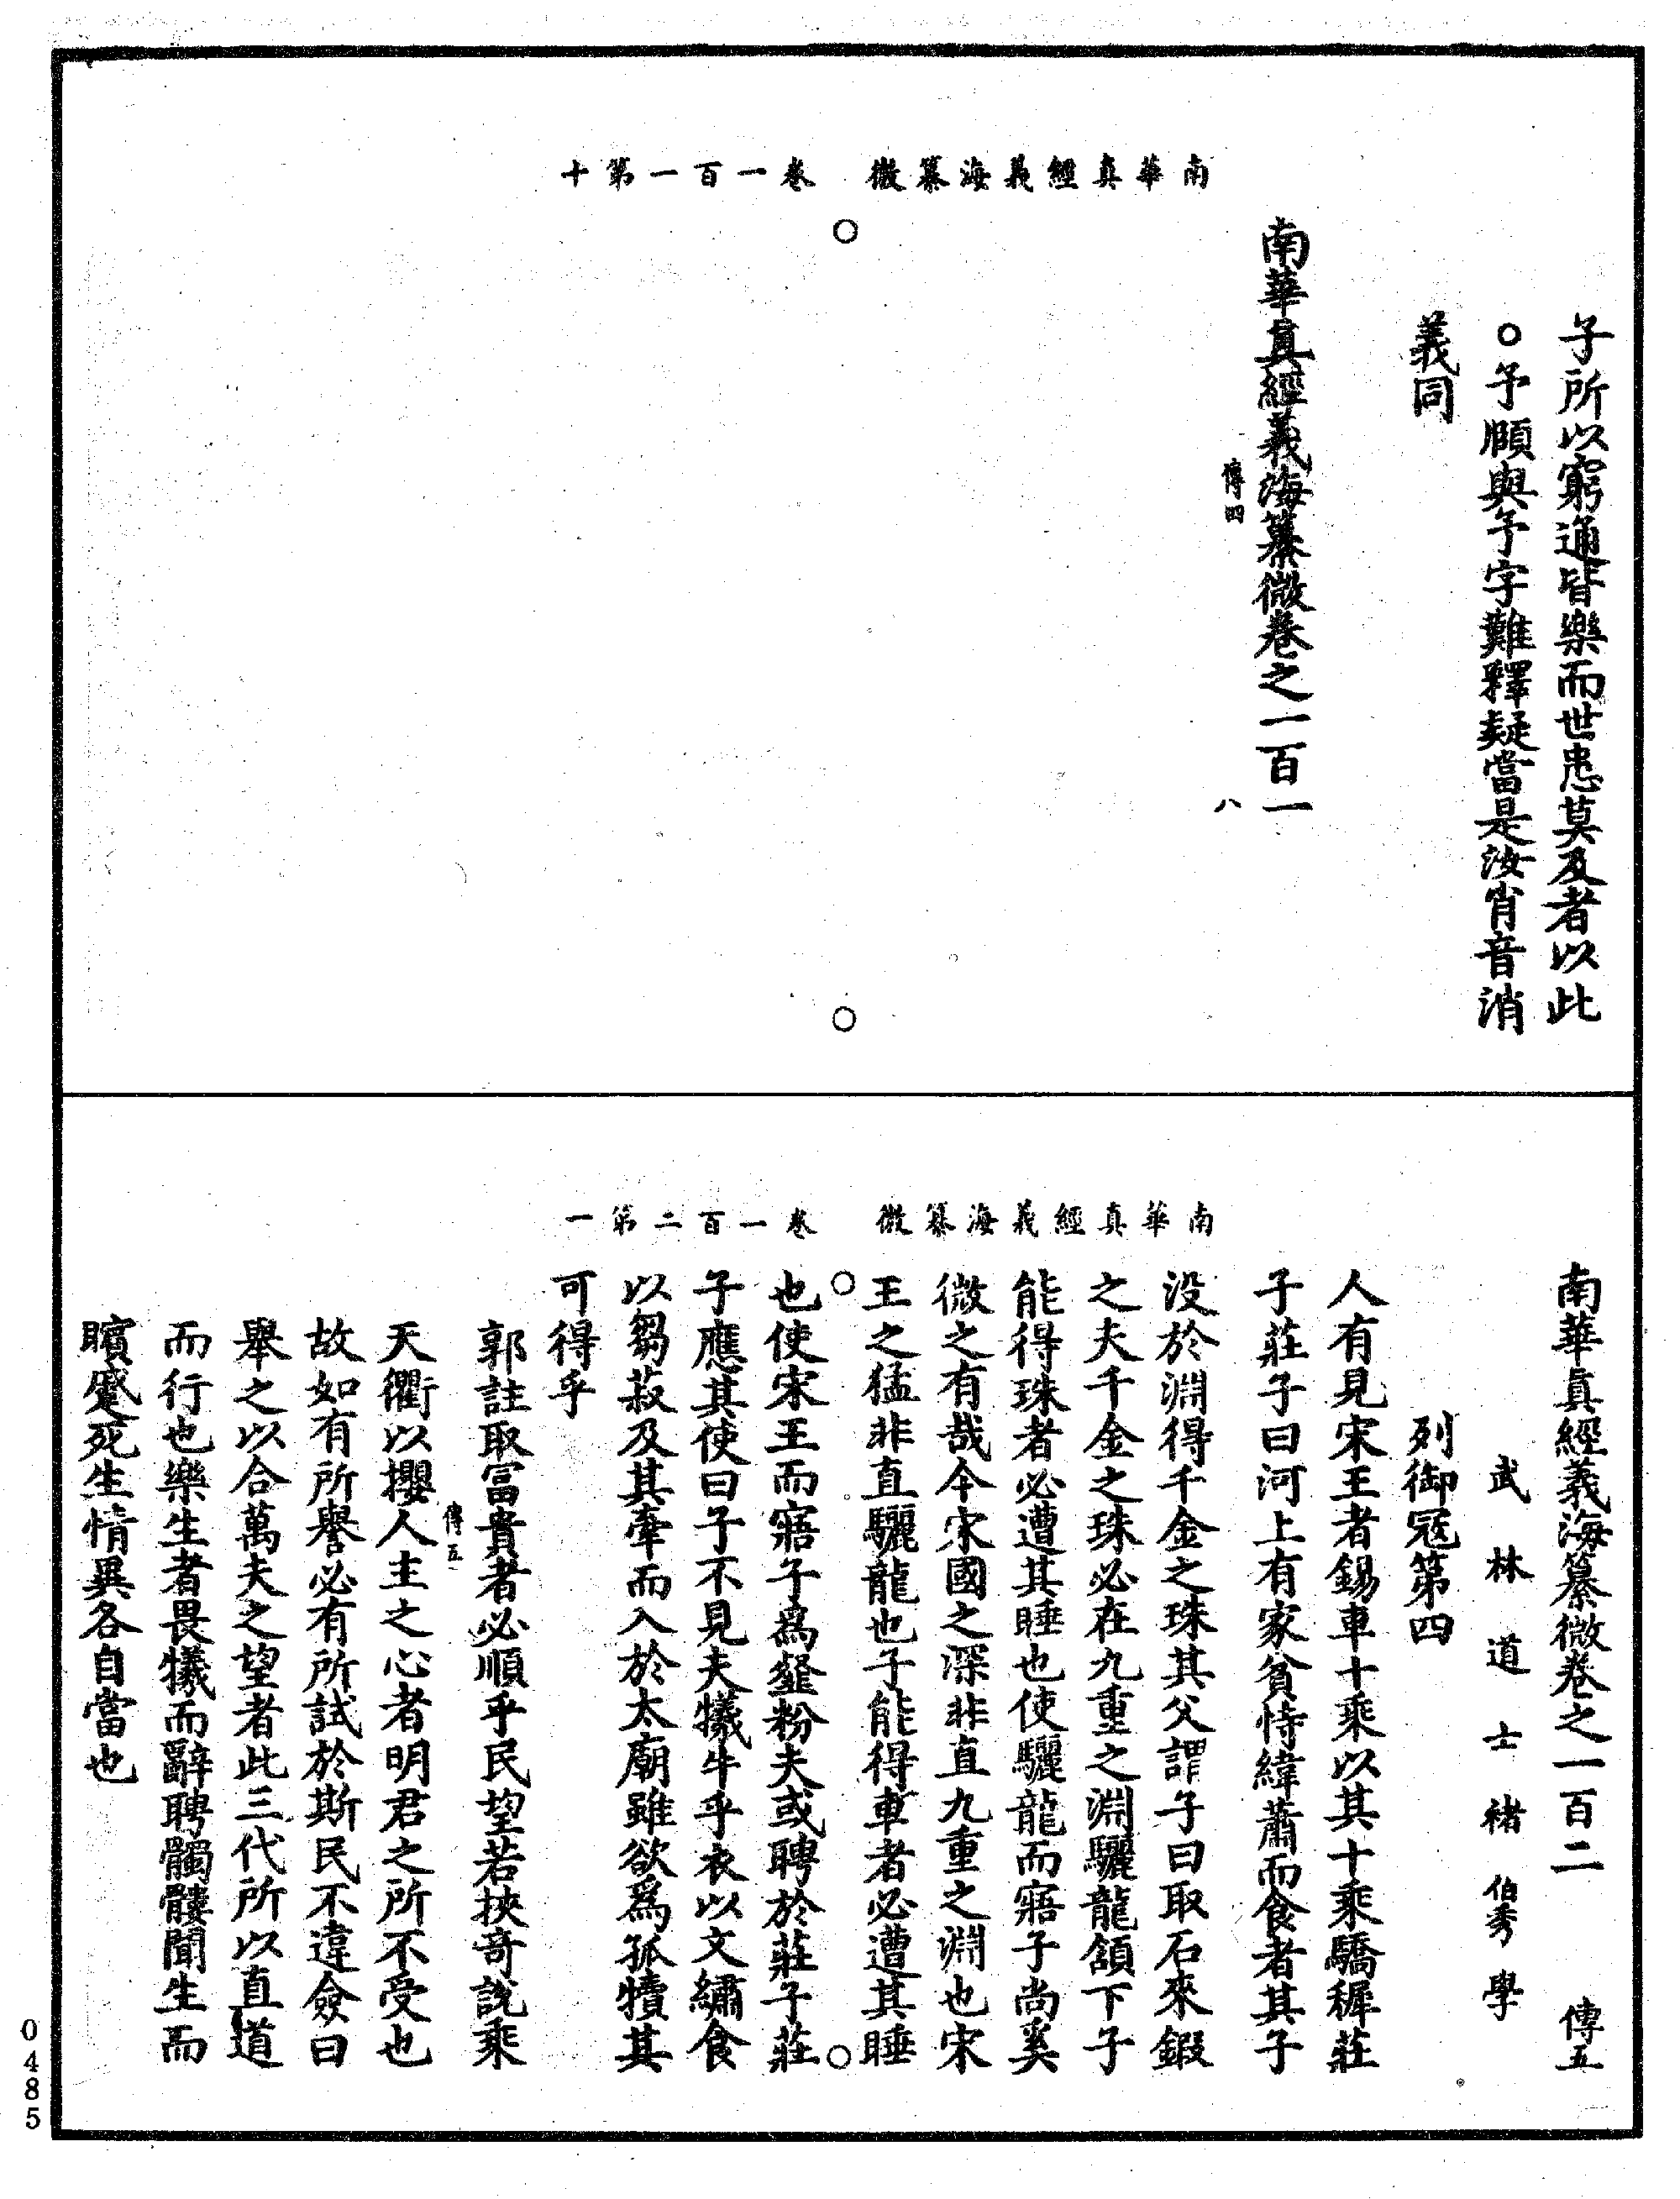 南華真經義海纂微　卷一百一第十
子所以窮通皆樂而世患莫及者以此
○予順與予字難釋疑當是汝肖音消
義同
南華眞經義海纂微卷之一百一
傳四
八
南華真經義海纂微　卷一百二第一
南華眞經義海纂微卷之一百二　傳五
武林道士褚伯秀學
列御冦第四
人有見宋王者錫車十乘以其十乘驕穉莊
子莊子曰河上有家貧恃緯蕭而食者其子
没於淵得千金之珠其父謂子曰取石來鍜
之夫千金之珠必在九重之淵驪龍頷下子
能得珠者必遭其睡也使驪龍而寤子尚奚
微之有哉今宋國之深非直九重之淵也宋
王之猛非直驪龍也子能得車者必遭其睡
也使宋王而寤子爲韲粉夫或聘於莊子莊
子應其使曰子不見夫犧牛乎衣以文繡食
以芻菽及其牽而入於太廟雖欲爲孤犢其
可得乎
郭註取冨貴者必順乎民望若挾奇說乘
傳五
天衢以攖人主之心者明君之所不受也
故如有所譽必有所試於斯民不違僉曰
舉之以合萬夫之望者此三代所以直道
而行也樂生者畏犧而辭聘髑髏聞生而
矉蹙死生情異各自當也
0485